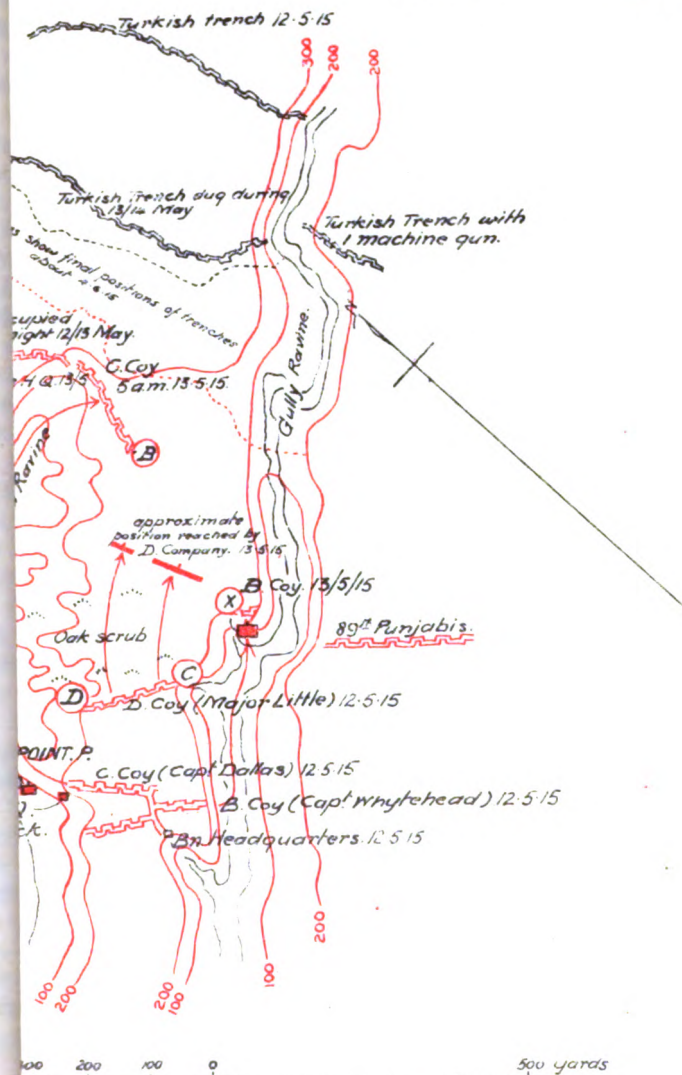 Turkish trench 12·5·15
300
200
200
Turkish Trench dug during
13/14 May
Turkish Trench with
1 machine gun.
show final positions of trenches
about 4·6·15
Gully Ravine.
cupied
night 12/13 May.
C. Coy
5 a.m. 13·5·15.
H.Q. 13/5
B
Ravine
approximate
position reached by
D. Company. 13·5·15
X
B. Coy. 13/5/15
Oak scrub
89th Punjabis.
C
D
D. Coy (Major Little) 12·5·15
POINT. P.
C. Coy (Capt Dallas) 12·5·15
B. Coy (Capt Whytehead) 12·5·15
Bn Headquarters. 12·5·15
100
200
200
100
100
200
300 200 100 0 500 yards